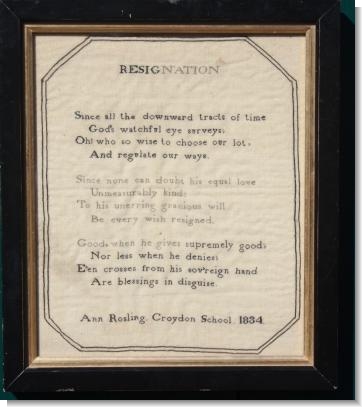 RESIGNATION
Since all the downward tracts of time
God's watchful eye surveys;
Oh! who so wise to choose our lot,
And regulate our ways.
Since none can doubt his equal love
Unmeasurably kind;
To his unerring gracious will
Be every wish resigned.
Good, when he gives supremely good;
Nor less when he denies;
E'en crosses from his sov'reign hand
Are blessings in disguise.
Ann Rosling. Croydon School. 1834